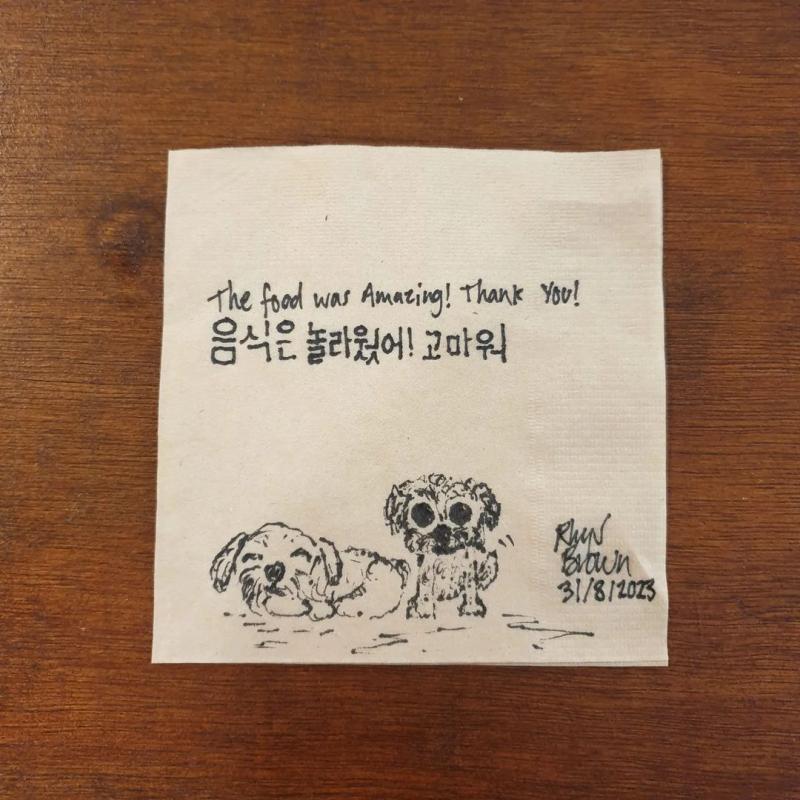 The food was Amazing! Thank You!
음식은 놀라웠어! 고마워
Rhys
Brown
31/8/2023